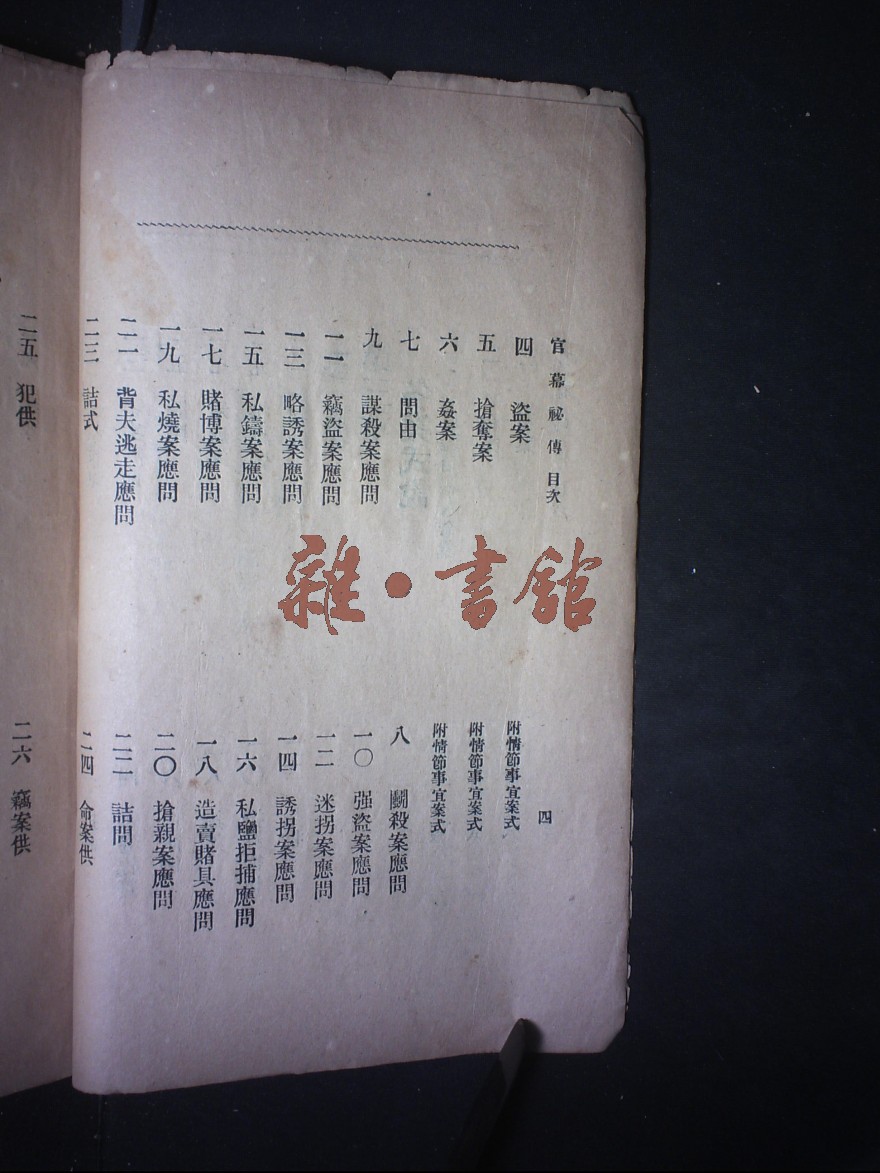 官幕祕傳目次
四
四 盜案
附情節事宜案式
五 搶奪案
附情節事宜案式
六 姦案
附情節事宜案式
七 問由
八 鬭殺案應問
九 謀殺案應問
一〇 强盜案應問
一一 竊盜案應問
一二 迷拐案應問
一三 略誘案應問
一四 誘拐案應問
一五 私鑄案應問
一六 私鹽拒捕應問
一七 賭博案應問
一八 造賣賭具應問
一九 私燒案應問
二〇 搶親案應問
二一 背夫逃走應問
二二 詰問
二三 詰式
二四 命案供
二五 犯供
二六 竊案供
雜·書館